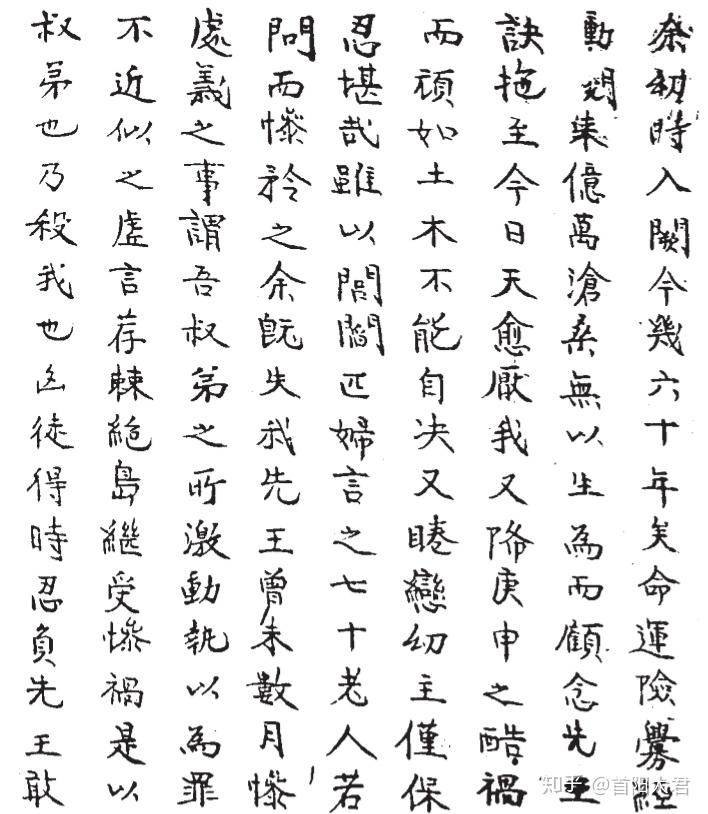 余幼時入闕今幾六十年矣命運險釁經
動閱來億萬滄桑無以生為而顧念先王
訣拖至今日天愈厭我又降庚申之酷禍
而頑如土木不能自决又睠戀幼主僅保
忍堪哉雖以閭閻匹婦言之七十老人若
問而慘矜之余旣失我先王曾未數月慘
處義之事謂吾叔弟之所激動執以為罪
不近似之虛言荐棘絕島繼受慘禍是以
叔弟也乃殺我也凶徒得時忍負先王敢
知乎 @首阳大君